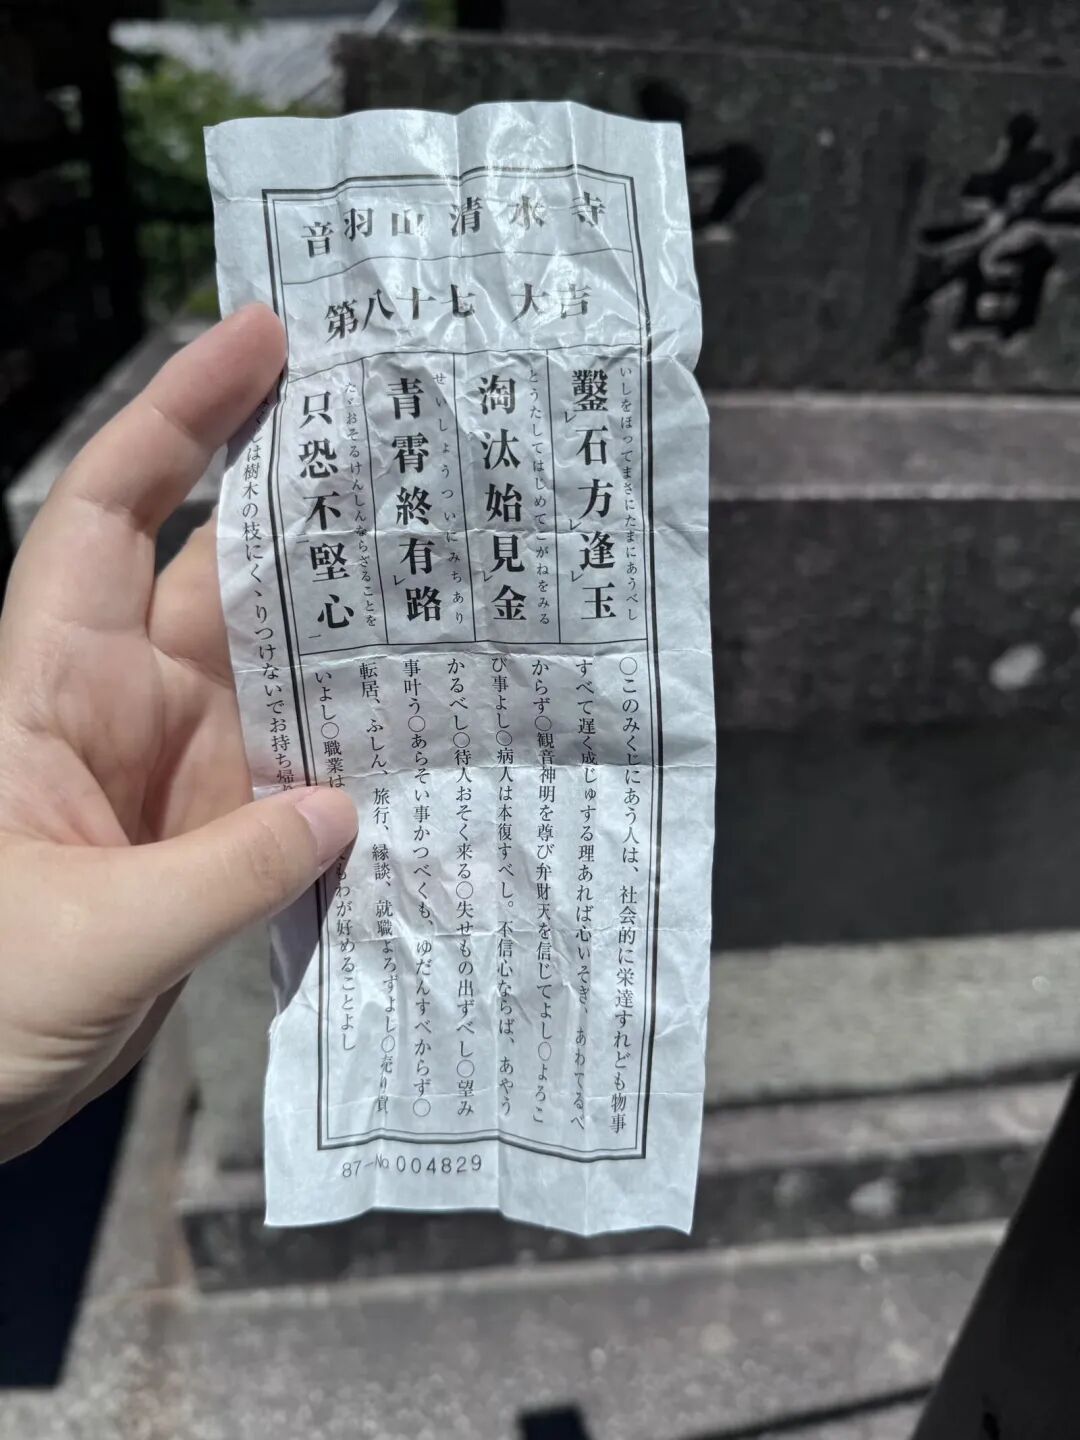 音羽山清水寺
第八十七 大吉
いしをほってまさにたまにあうべし
鑿石方逢玉
とうたしてはじめてこがねをみる
淘汰始見金
せいしょうついにみちあり
青霄終有路
たゞおそるけんしんならざることを
只恐不堅心
〇このみくじにあう人は、社会的に栄達すれども物事
すべて遅く成じゅする理あれば心いそぎ、あわてるべ
からず〇観音神明を尊び弁財天を信じてよし〇よろこ
び事よし〇病人は本復すべし。不信心ならば、あやう
かるべし〇待人おそく来る〇失せもの出ずべし〇望み
事叶う〇あらそい事かつべくも、ゆだんすべからず〇
転居、ふしん、旅行、縁談、就職よろずよし〇売り買
いよし〇職業は もわが好めることよし
くじは樹木の枝にくゝりつけないでお持ち帰り
87-No 004829
者